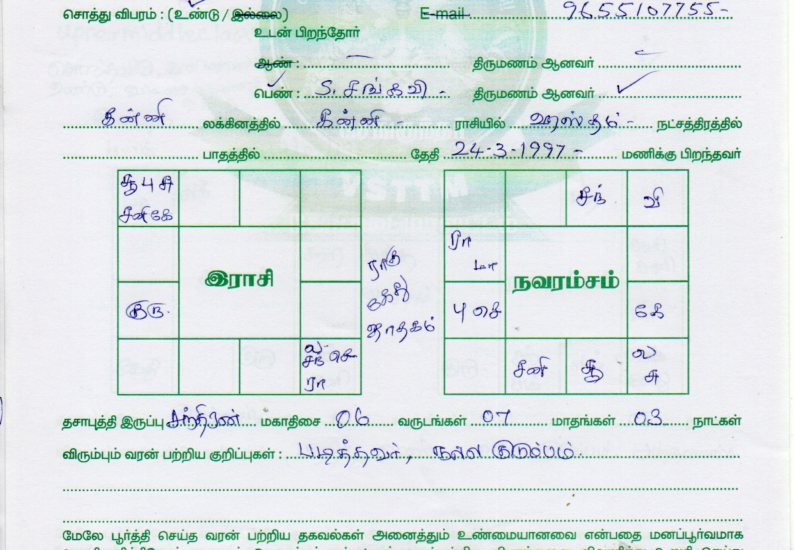 சொத்து விபரம் : (உண்டு / இல்லை) E-mail 9655107755-
உடன் பிறந்தோர்
ஆண் : திருமணம் ஆனவர்
பெண் : S. சங்கவி - திருமணம் ஆனவர் ✓
கன்னி லக்கினத்தில் கன்னி - ராசியில் ஹஸ்தம் - நட்சத்திரத்தில்
பாதத்தில் தேதி 24-3-1997 - மணிக்கு பிறந்தவர்
சூ பு சு
சனி கே
இராசி
குரு
ல
சந் செ
ரா
ராகு
கேது
ஜாதகம்
சந் வி
ரா
மா
நவரம்சம்
பு செ கே
சனி சூ ல
சு
தசாபுத்தி இருப்பு சந்திரன் மகாதிசை 06 வருடங்கள் 07 மாதங்கள் 03 நாட்கள்
விரும்பும் வரன் பற்றிய குறிப்புகள் : படித்தவர், நல்ல குடும்பம்.
மேலே பூர்த்தி செய்த வரன் பற்றிய தகவல்கள் அனைத்தும் உண்மையானவை என்பதை மனப்பூர்வமாக